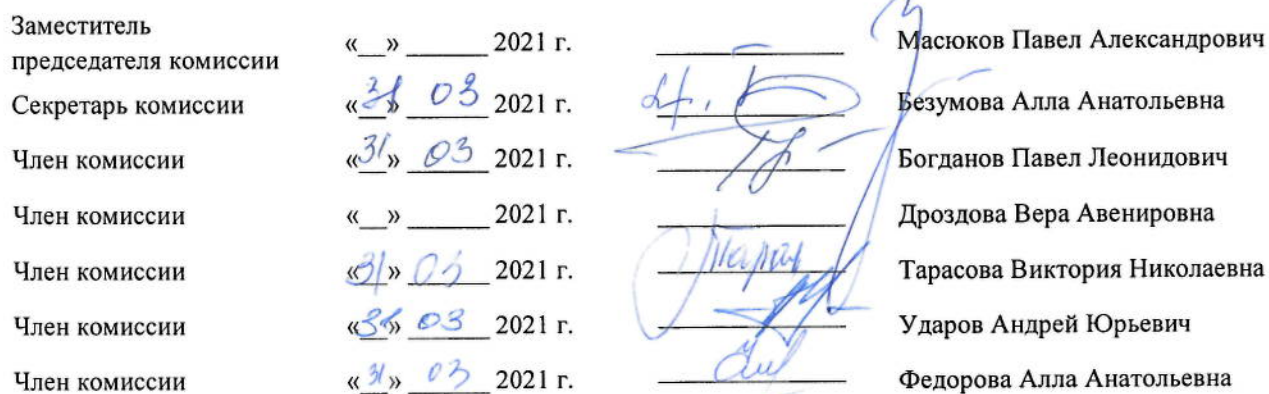 Заместитель
председателя комиссии «__» ______ 2021 г. Масюков Павел Александрович
Секретарь комиссии «31» 03 2021 г. Безумова Алла Анатольевна
Член комиссии «31» 03 2021 г. Богданов Павел Леонидович
Член комиссии «__» ______ 2021 г. Дроздова Вера Авенировна
Член комиссии «31» 03 2021 г. Тарасова Виктория Николаевна
Член комиссии «31» 03 2021 г. Ударов Андрей Юрьевич
Член комиссии «31» 03 2021 г. Федорова Алла Анатольевна